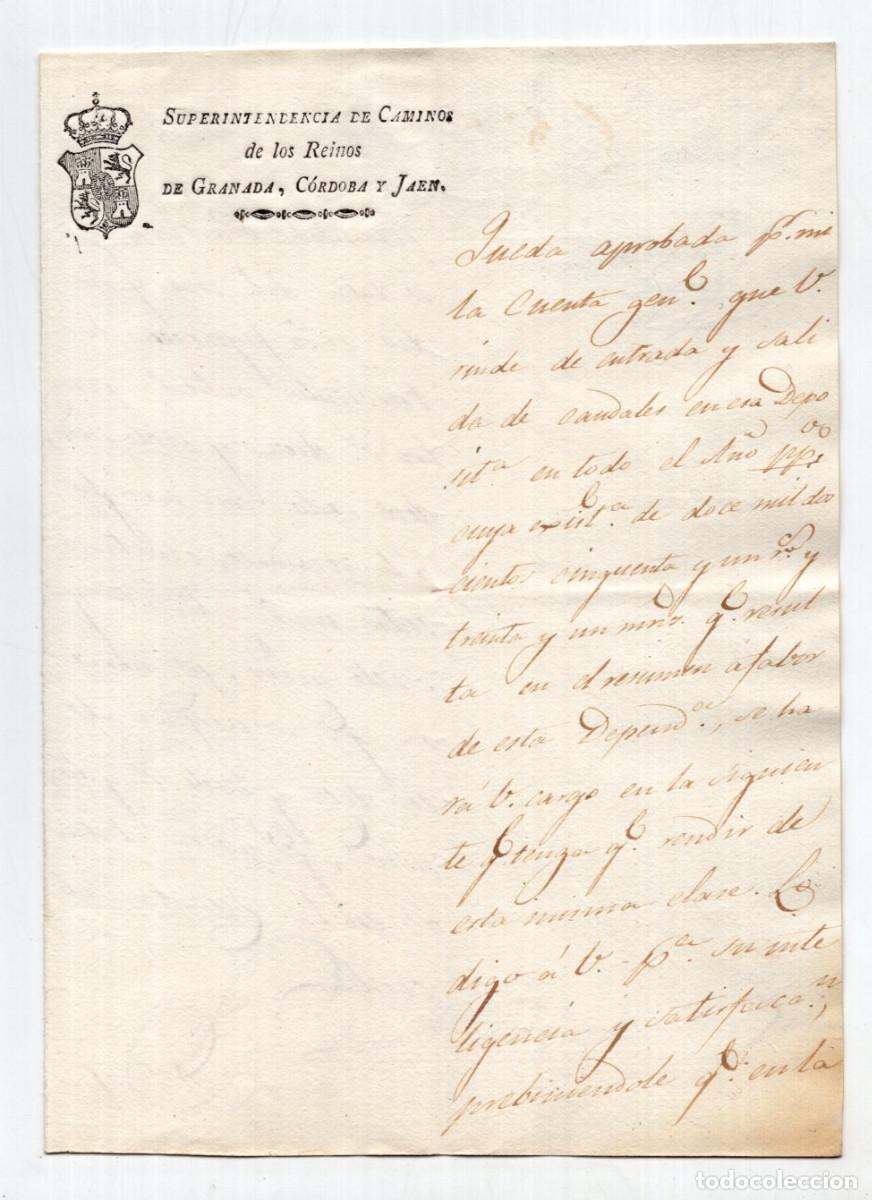 SUPERINTENDENCIA DE CAMINOS
de los Reinos
DE GRANADA, CÓRDOBA Y JAEN.
Queda aprobada pr. mi
la Cuenta genl. que V.
rinde de entrada y sali
da de caudales en esa Depo
sita en todo el Año ppo.
cuya existca. de doce mil dos
cientos cinquenta y un rs. y
treinta y un mrs. qe. resul
ta en el resumen á fabor
de esta Dependa., se ha
rá V. cargo en la siguien
te qe. tenga qe. rendir de
esta misma clase. Lo
digo á V. pa. su inte
ligencia y satisfaccn.,
prebiniendole qe. en la
todocoleccion